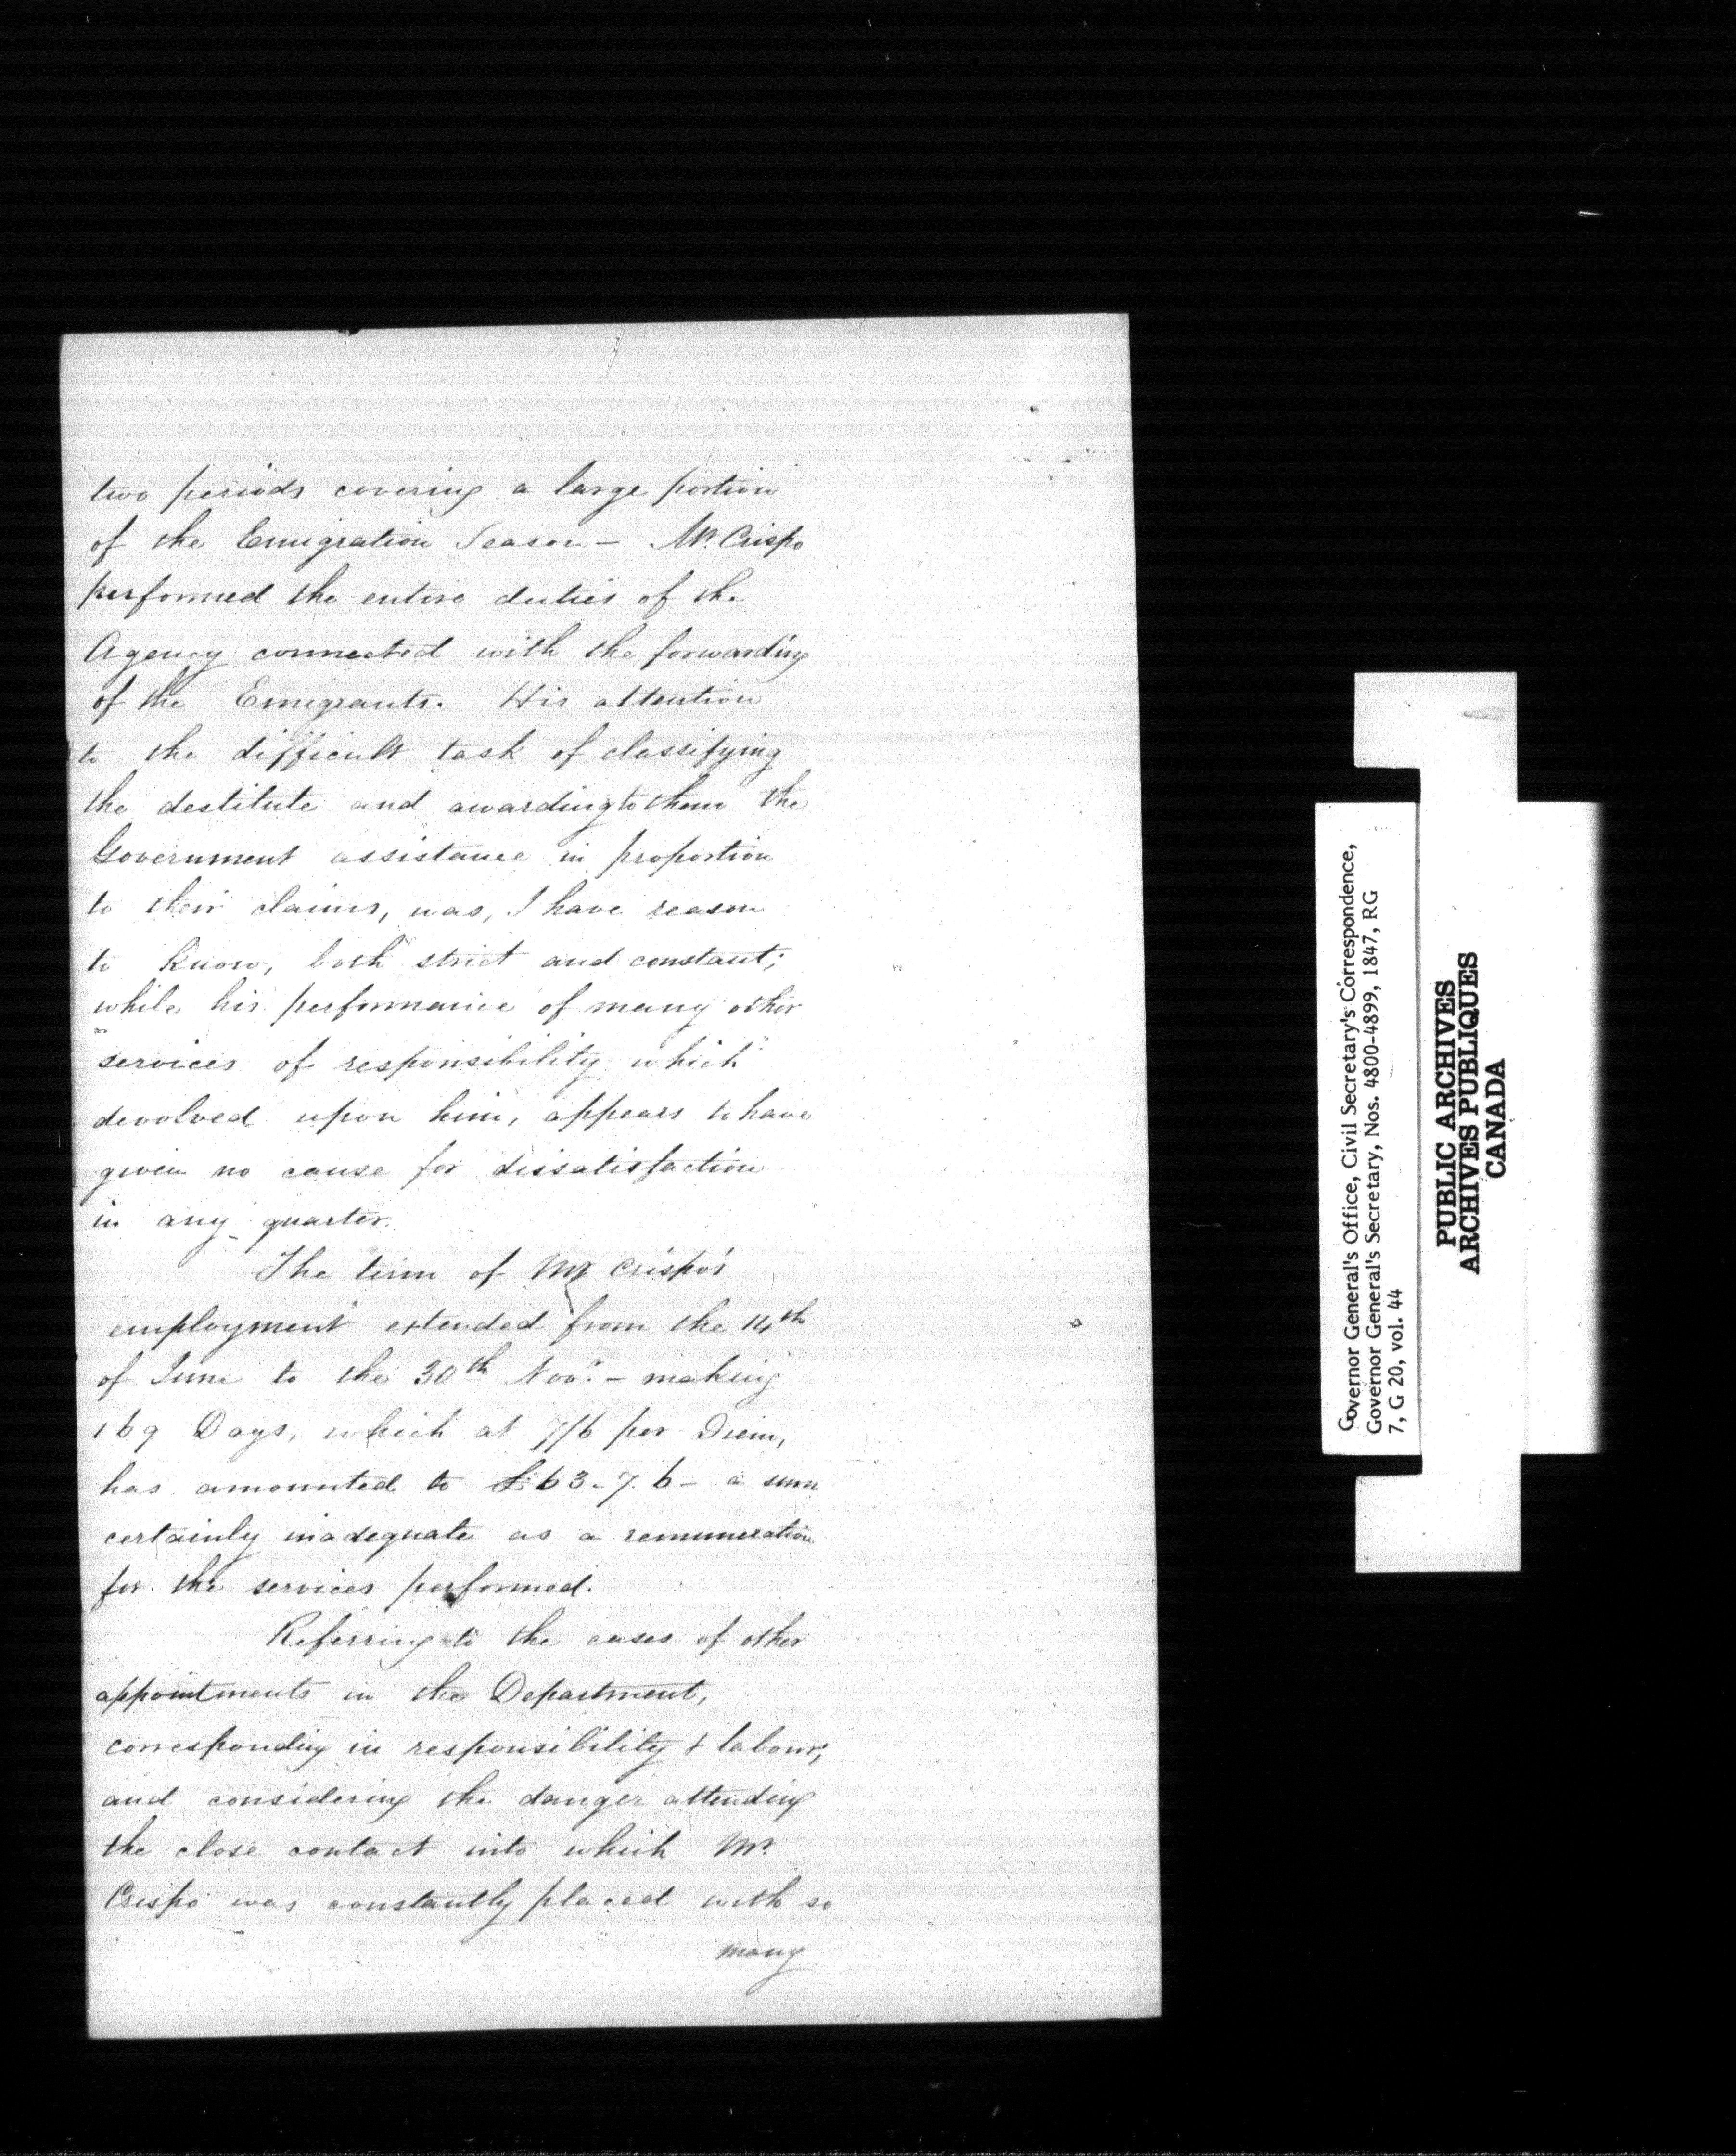 two periods covering a large portion
of the Emigration Season – Mr. Crispo
performed the entire duties of the
Agency connected with the forwarding
of the Emigrants. His attention
to the difficult task of classifying
the destitute and awarding to them the
Government assistance in proportion
to their claims, was, I have reason
to know, both strict and constant;
while his performance of many other
"services of responsibility which"
devolved upon him, appears to have
given no cause for dissatisfaction
in any quarter.
The term of Mr Crispo's
employment extended from the 14th
of June to the 30th Novr. – making
169 Days, which at 7/6 per Diem,
has amounted to £63-7.6 – a sum
certainly inadequate as a remuneration
for the services performed.
Referring to the cases of other
appointments in the Department,
corresponding in responsibility & labour;
and considering the danger attending
the close contact into which Mr.
Crispo was constantly placed with so
many
Governor General's Office, Civil Secretary's Correspondence,
Governor General's Secretary, Nos. 4800-4899, 1847, RG
7, G 20, vol. 44
PUBLIC ARCHIVES
ARCHIVES PUBLIQUES
CANADA